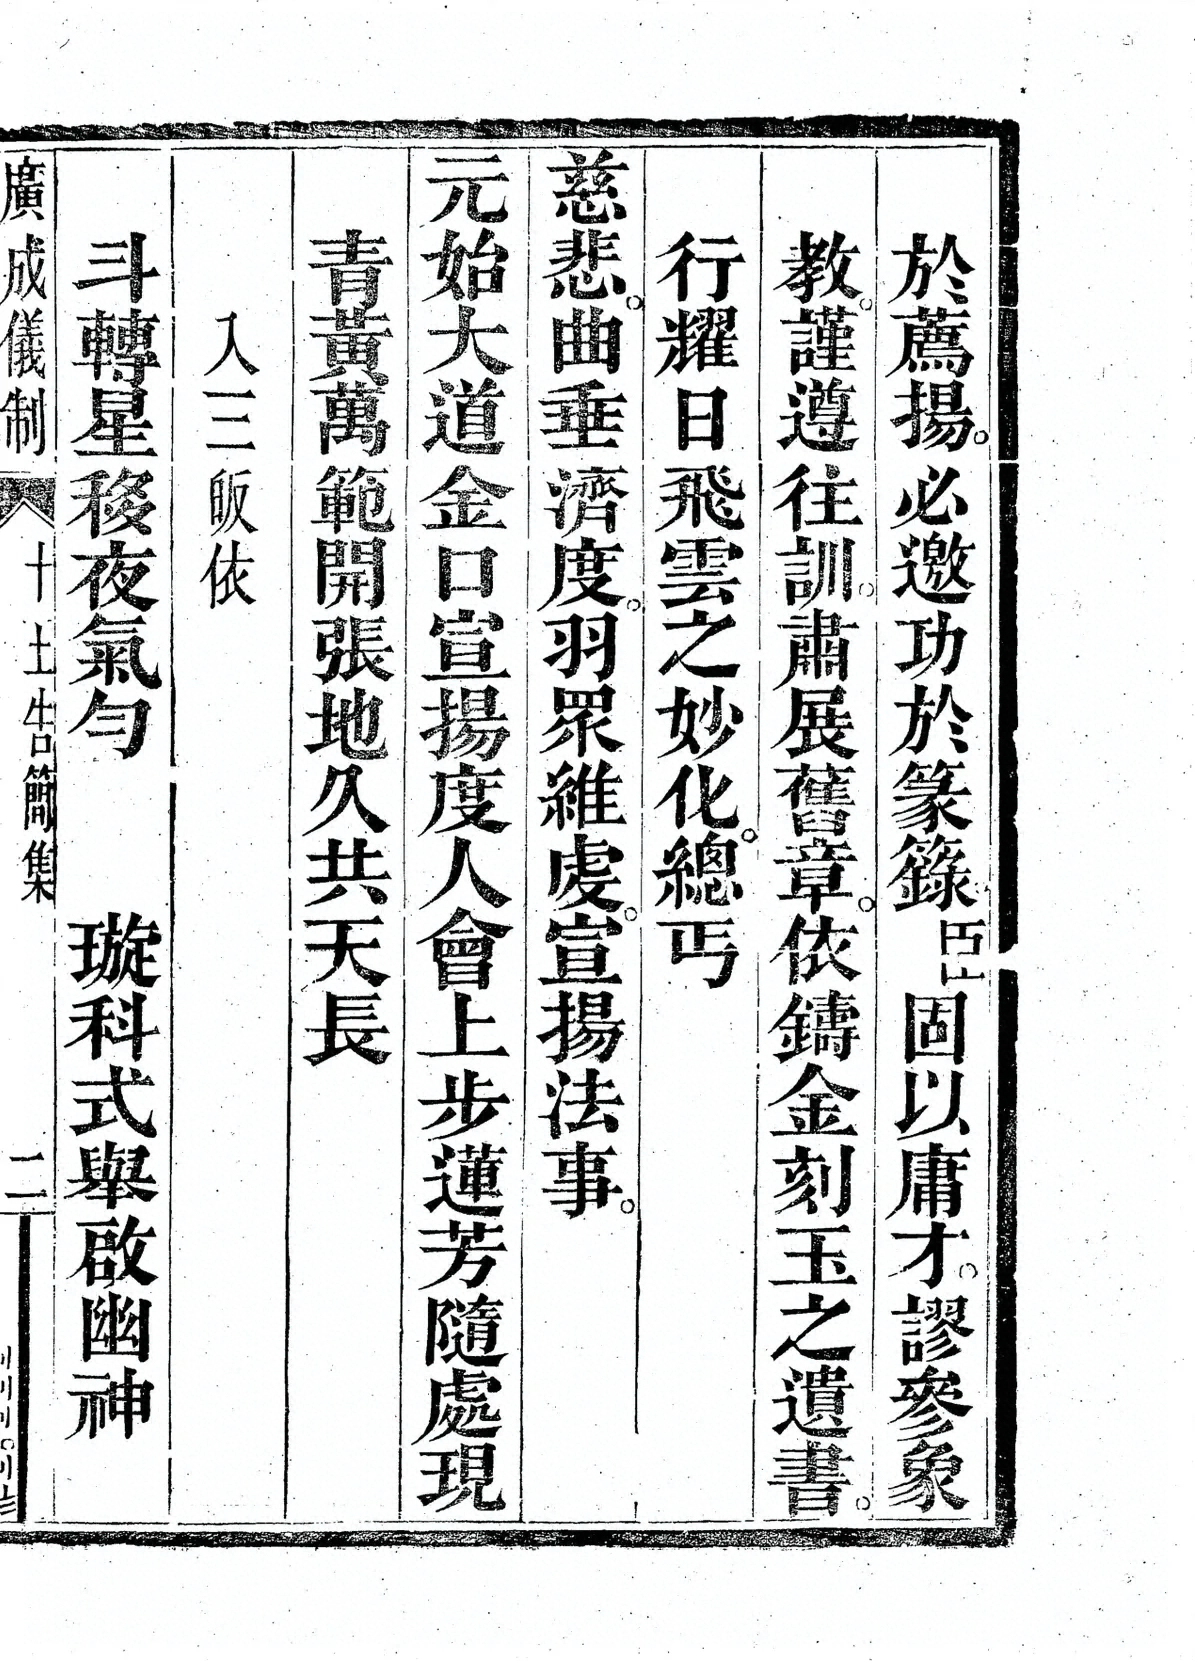 於薦揚。必邀功於篆籙。臣厶固以庸才。謬參象
教。謹遵往訓。肅展舊章。依鑄金刻玉之遺書。
行耀日飛雲之妙化。總丐
慈悲。曲垂濟度。羽眾維虔。宣揚法事。
元始大道金口宣揚度人會上步蓮芳隨處現
青黃萬範開張地久共天長
入三皈依
斗轉星移夜氣勻　璇科式舉啟幽神
廣成儀制　十土告簡集　二